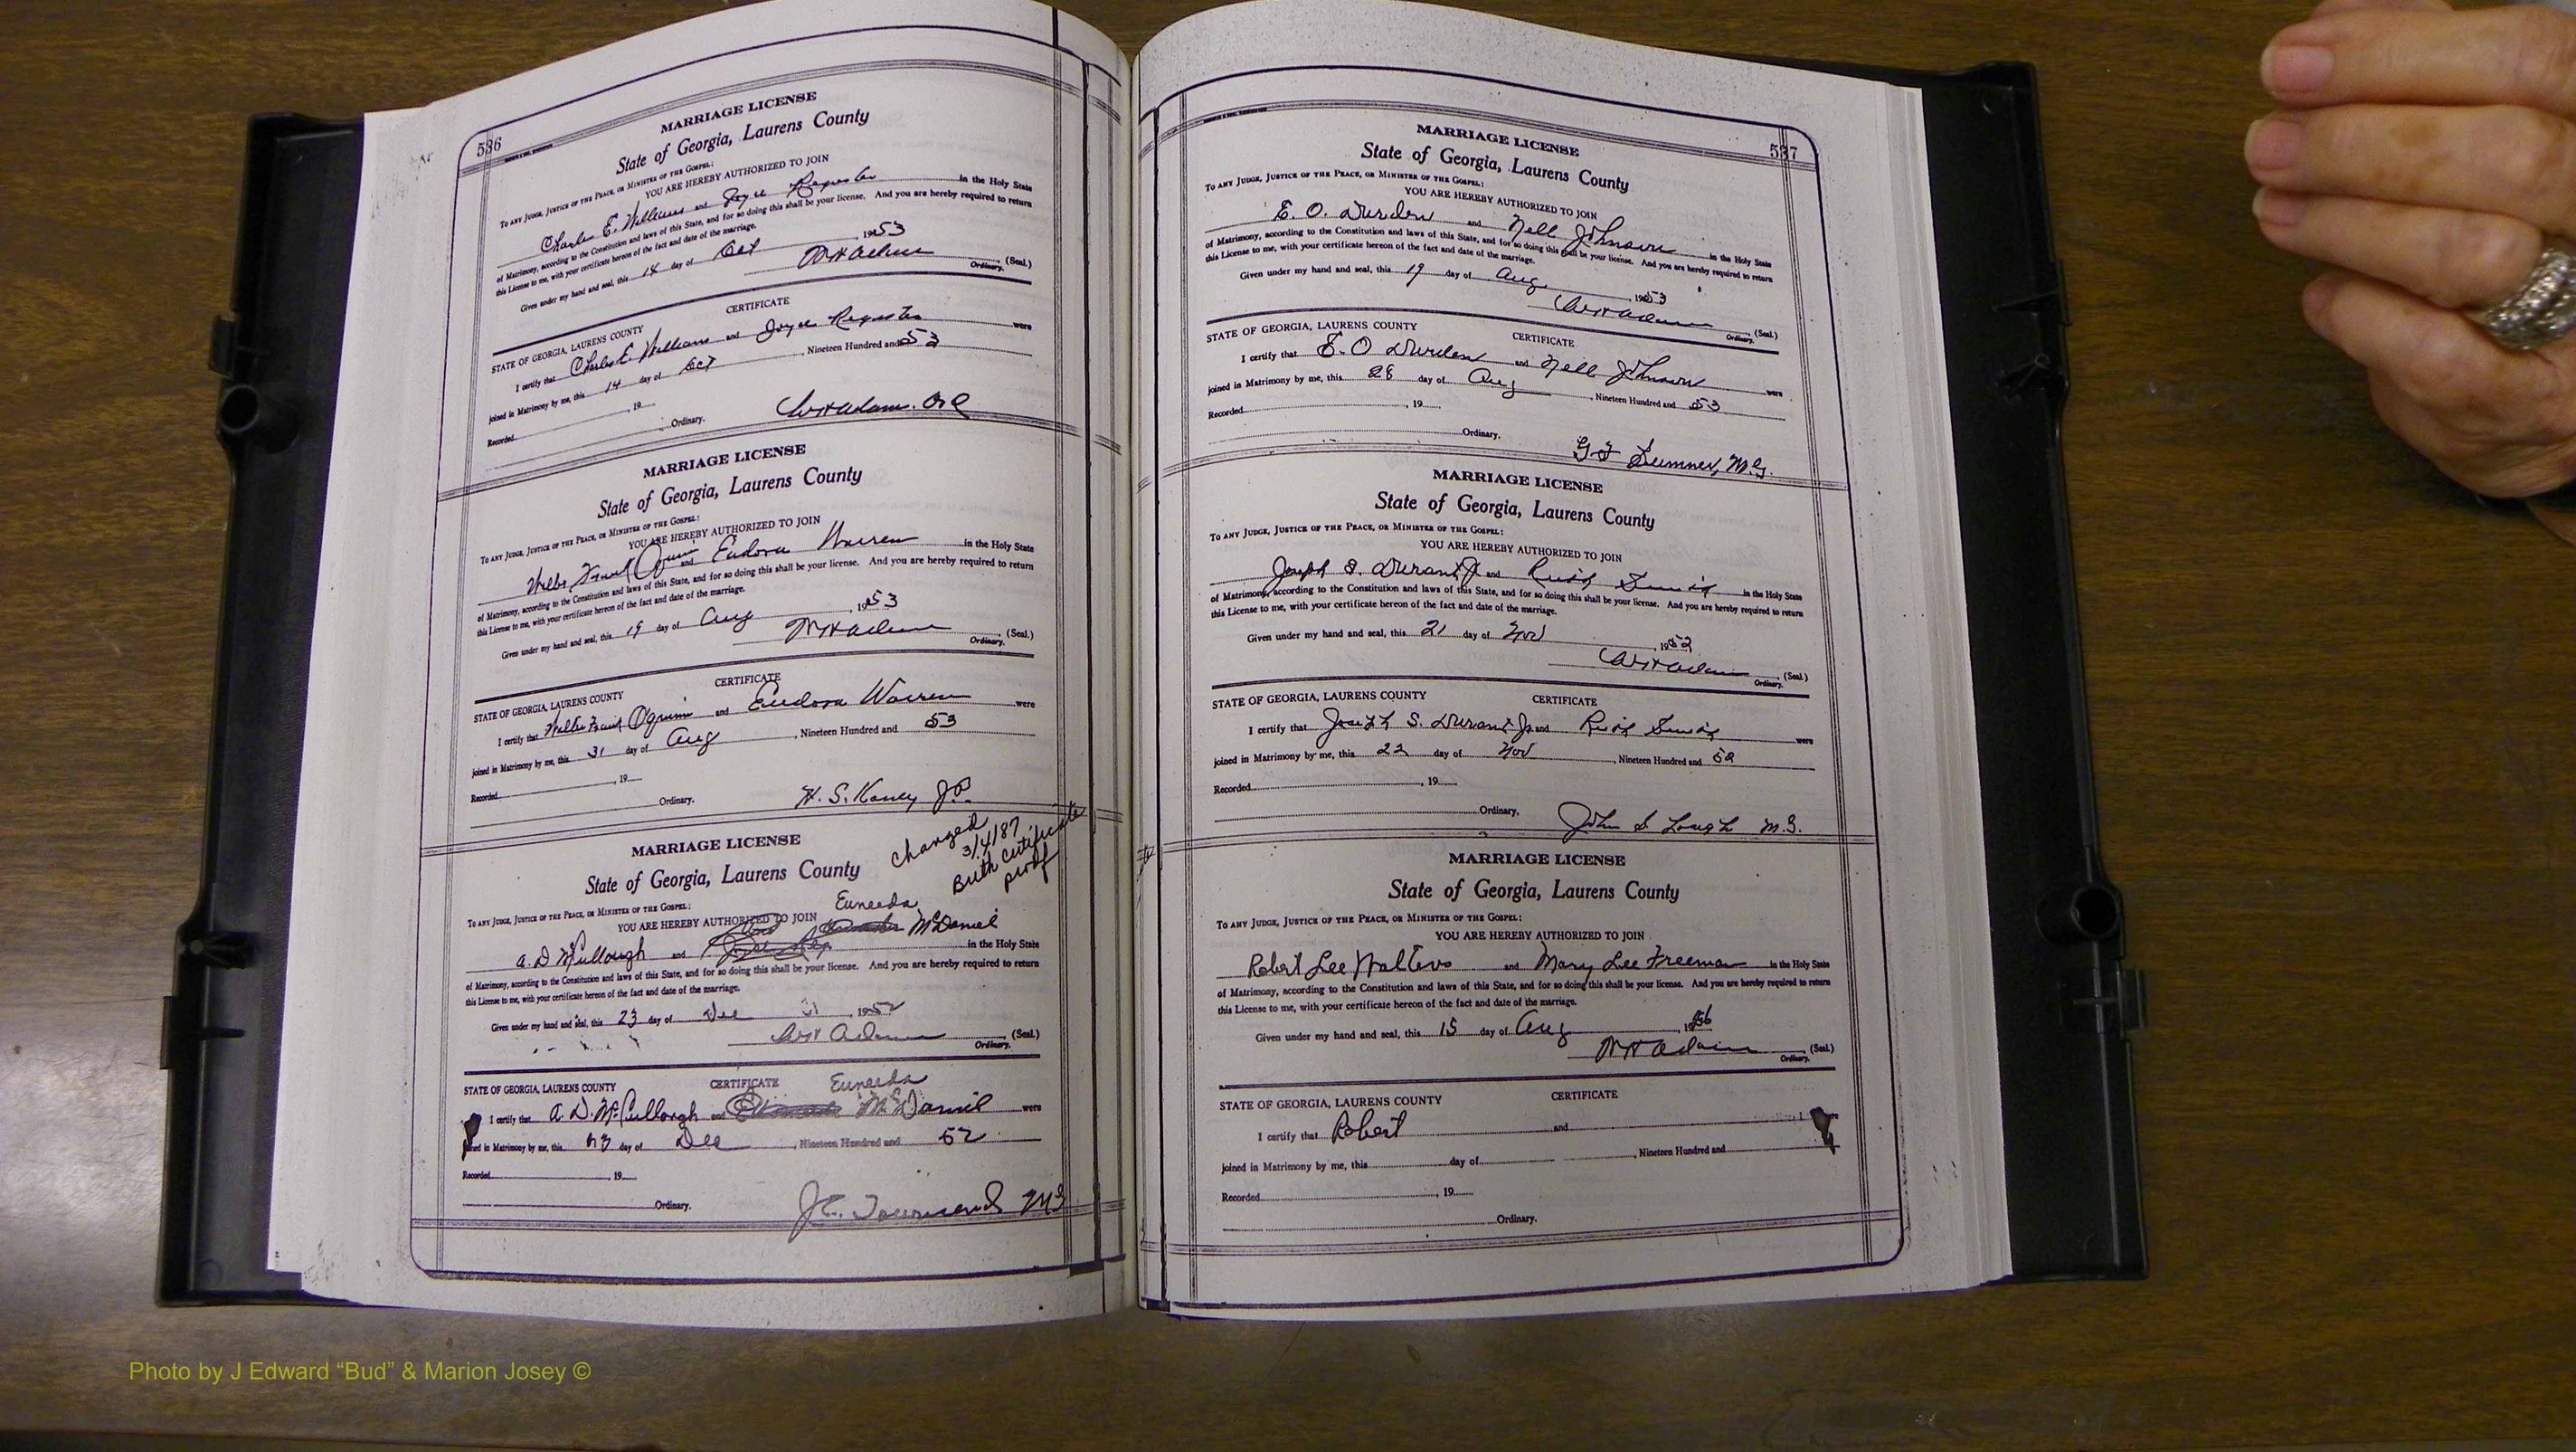 536
MARRIAGE LICENSE
State of Georgia, Laurens County
To any Judge, Justice of the Peace, or Minister of the Gospel:
YOU ARE HEREBY AUTHORIZED TO JOIN
Charles E. Williams and Joyce Register in the Holy State
of Matrimony, according to the Constitution and laws of this State, and for so doing this shall be your license. And you are hereby required to return
this License to me, with your certificate hereon of the fact and date of the marriage.
Given under my hand and seal, this 14 day of Oct, 1953
(Seal.)
Ordinary.
CERTIFICATE
STATE OF GEORGIA, LAURENS COUNTY
I certify that Charles E. Williams and Joyce Register were
joined in Matrimony by me, this 14 day of Oct, Nineteen Hundred and 53
Recorded, 19
Ordinary.
MARRIAGE LICENSE
State of Georgia, Laurens County
To any Judge, Justice of the Peace, or Minister of the Gospel:
YOU ARE HEREBY AUTHORIZED TO JOIN
and Eudora Warren in the Holy State
of Matrimony, according to the Constitution and laws of this State, and for so doing this shall be your license. And you are hereby required to return
this License to me, with your certificate hereon of the fact and date of the marriage.
Given under my hand and seal, this 19 day of Aug, 1953
(Seal.)
Ordinary.
CERTIFICATE
STATE OF GEORGIA, LAURENS COUNTY
I certify that Walter O'quinn and Eudora Warren were
joined in Matrimony by me, this 31 day of Aug, Nineteen Hundred and 53
Recorded, 19
Ordinary.
H. S. J.P.
Changed
3/4/87
Birth Certificate
proof
MARRIAGE LICENSE
State of Georgia, Laurens County
To any Judge, Justice of the Peace, or Minister of the Gospel:
Euneeda
YOU ARE HEREBY AUTHORIZED TO JOIN McDaniel
A. D McCullough and in the Holy State
of Matrimony, according to the Constitution and laws of this State, and for so doing this shall be your license. And you are hereby required to return
this License to me, with your certificate hereon of the fact and date of the marriage.
Given under my hand and seal, this 23 day of Dec, 1952
(Seal.)
Ordinary.
CERTIFICATE Euneeda
STATE OF GEORGIA, LAURENS COUNTY
I certify that A. D. McCullough and McDaniel were
joined in Matrimony by me, this 23 day of Dec, Nineteen Hundred and 52
Recorded, 19
Ordinary.
J.E. Townsend MG
537
MARRIAGE LICENSE
State of Georgia, Laurens County
To any Judge, Justice of the Peace, or Minister of the Gospel:
YOU ARE HEREBY AUTHORIZED TO JOIN
E. O. Durden and Nell Johnson in the Holy State
of Matrimony, according to the Constitution and laws of this State, and for so doing this shall be your license. And you are hereby required to return
this License to me, with your certificate hereon of the fact and date of the marriage.
Given under my hand and seal, this 19 day of Aug, 1953
(Seal.)
Ordinary.
CERTIFICATE
STATE OF GEORGIA, LAURENS COUNTY
I certify that E. O Durden and Nell Johnson were
joined in Matrimony by me, this 28 day of Aug, Nineteen Hundred and 53
Recorded, 19
Ordinary.
Sumner, M.G.
MARRIAGE LICENSE
State of Georgia, Laurens County
To any Judge, Justice of the Peace, or Minister of the Gospel:
YOU ARE HEREBY AUTHORIZED TO JOIN
Joseph S. Durant Jr and Ruth in the Holy State
of Matrimony, according to the Constitution and laws of this State, and for so doing this shall be your license. And you are hereby required to return
this License to me, with your certificate hereon of the fact and date of the marriage.
Given under my hand and seal, this 21 day of Nov, 1952
(Seal.)
Ordinary.
CERTIFICATE
STATE OF GEORGIA, LAURENS COUNTY
I certify that Joseph S. Durant Jr and Ruth were
joined in Matrimony by me, this 22 day of Nov, Nineteen Hundred and 52
Recorded, 19
Ordinary.
John S Lough M.G.
MARRIAGE LICENSE
State of Georgia, Laurens County
To any Judge, Justice of the Peace, or Minister of the Gospel:
YOU ARE HEREBY AUTHORIZED TO JOIN
Robert Lee Walters and Mary Lee Freeman in the Holy State
of Matrimony, according to the Constitution and laws of this State, and for so doing this shall be your license. And you are hereby required to return
this License to me, with your certificate hereon of the fact and date of the marriage.
Given under my hand and seal, this 15 day of Aug
(Seal.)
Ordinary.
CERTIFICATE
STATE OF GEORGIA, LAURENS COUNTY
I certify that Robert and
joined in Matrimony by me, this day of, Nineteen Hundred and
Recorded, 19
Ordinary.
Photo by J Edward “Bud” & Marion Josey ©